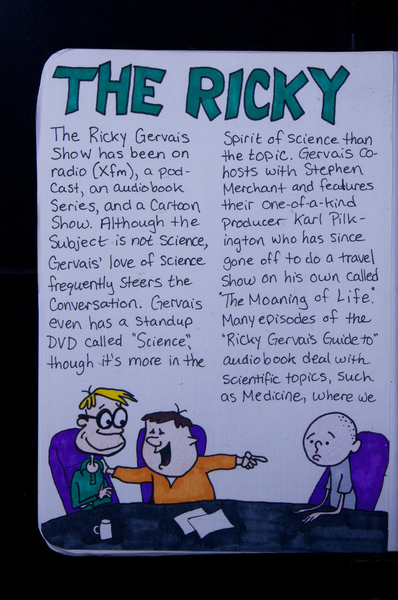 THE RICKY
The Ricky Gervais
Show has been on
radio (Xfm), a pod-
Cast, an audiobook
Series, and a Cartoon
Show. Although the
Subject is not Science,
Gervais' love of Science
frequently Steers the
Conversation. Gervais
even has a standup
DVD called "Science",
though it's more in the
Spirit of science than
the topic. Gervais co-
hosts with Stephen
Merchant and features
their one-of-a-kind
producer Karl Pilk-
ington who has since
gone off to do a travel
Show on his own called
"The Moaning of Life."
Many episodes of the
"Ricky Gervais Guide to"
audiobook deal with
scientific topics, such
as Medicine, where we